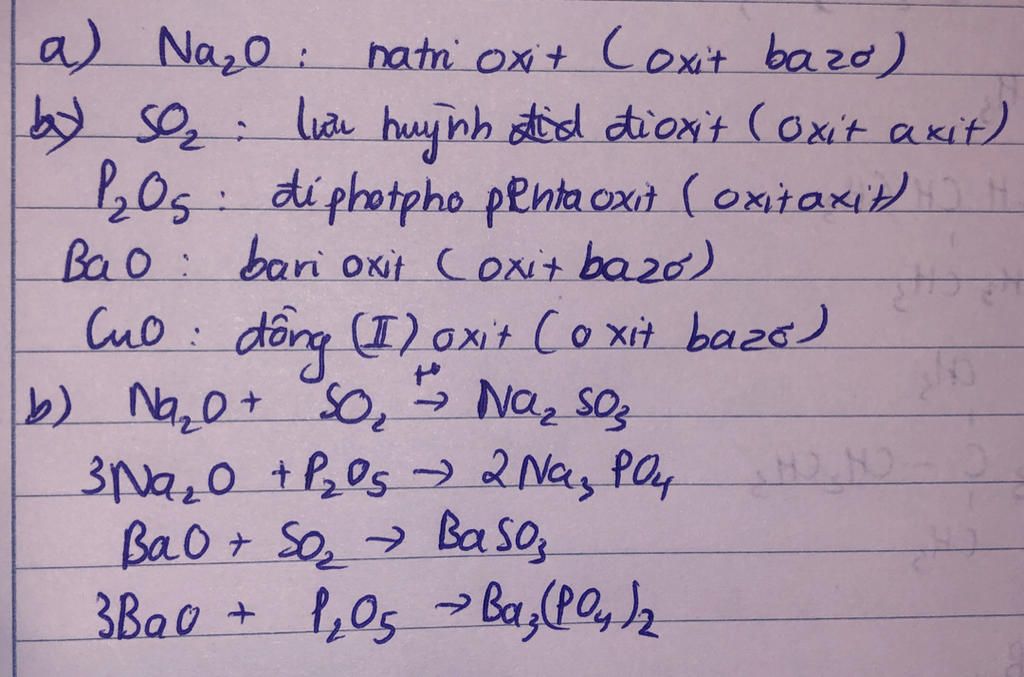 a) Na₂O : natri oxit (oxit bazơ)
b) SO₂ : lưu huỳnh đioxit (oxit axit)
P₂O₅ : điphotpho pentaoxit (oxit axit)
BaO : bari oxit (oxit bazơ)
CuO : đồng (II) oxit (oxit bazơ)
b) Na₂O + SO₂ t°→ Na₂SO₃
3Na₂O + P₂O₅ → 2Na₃PO₄
BaO + SO₂ → BaSO₃
3BaO + P₂O₅ → Ba₃(PO₄)₂